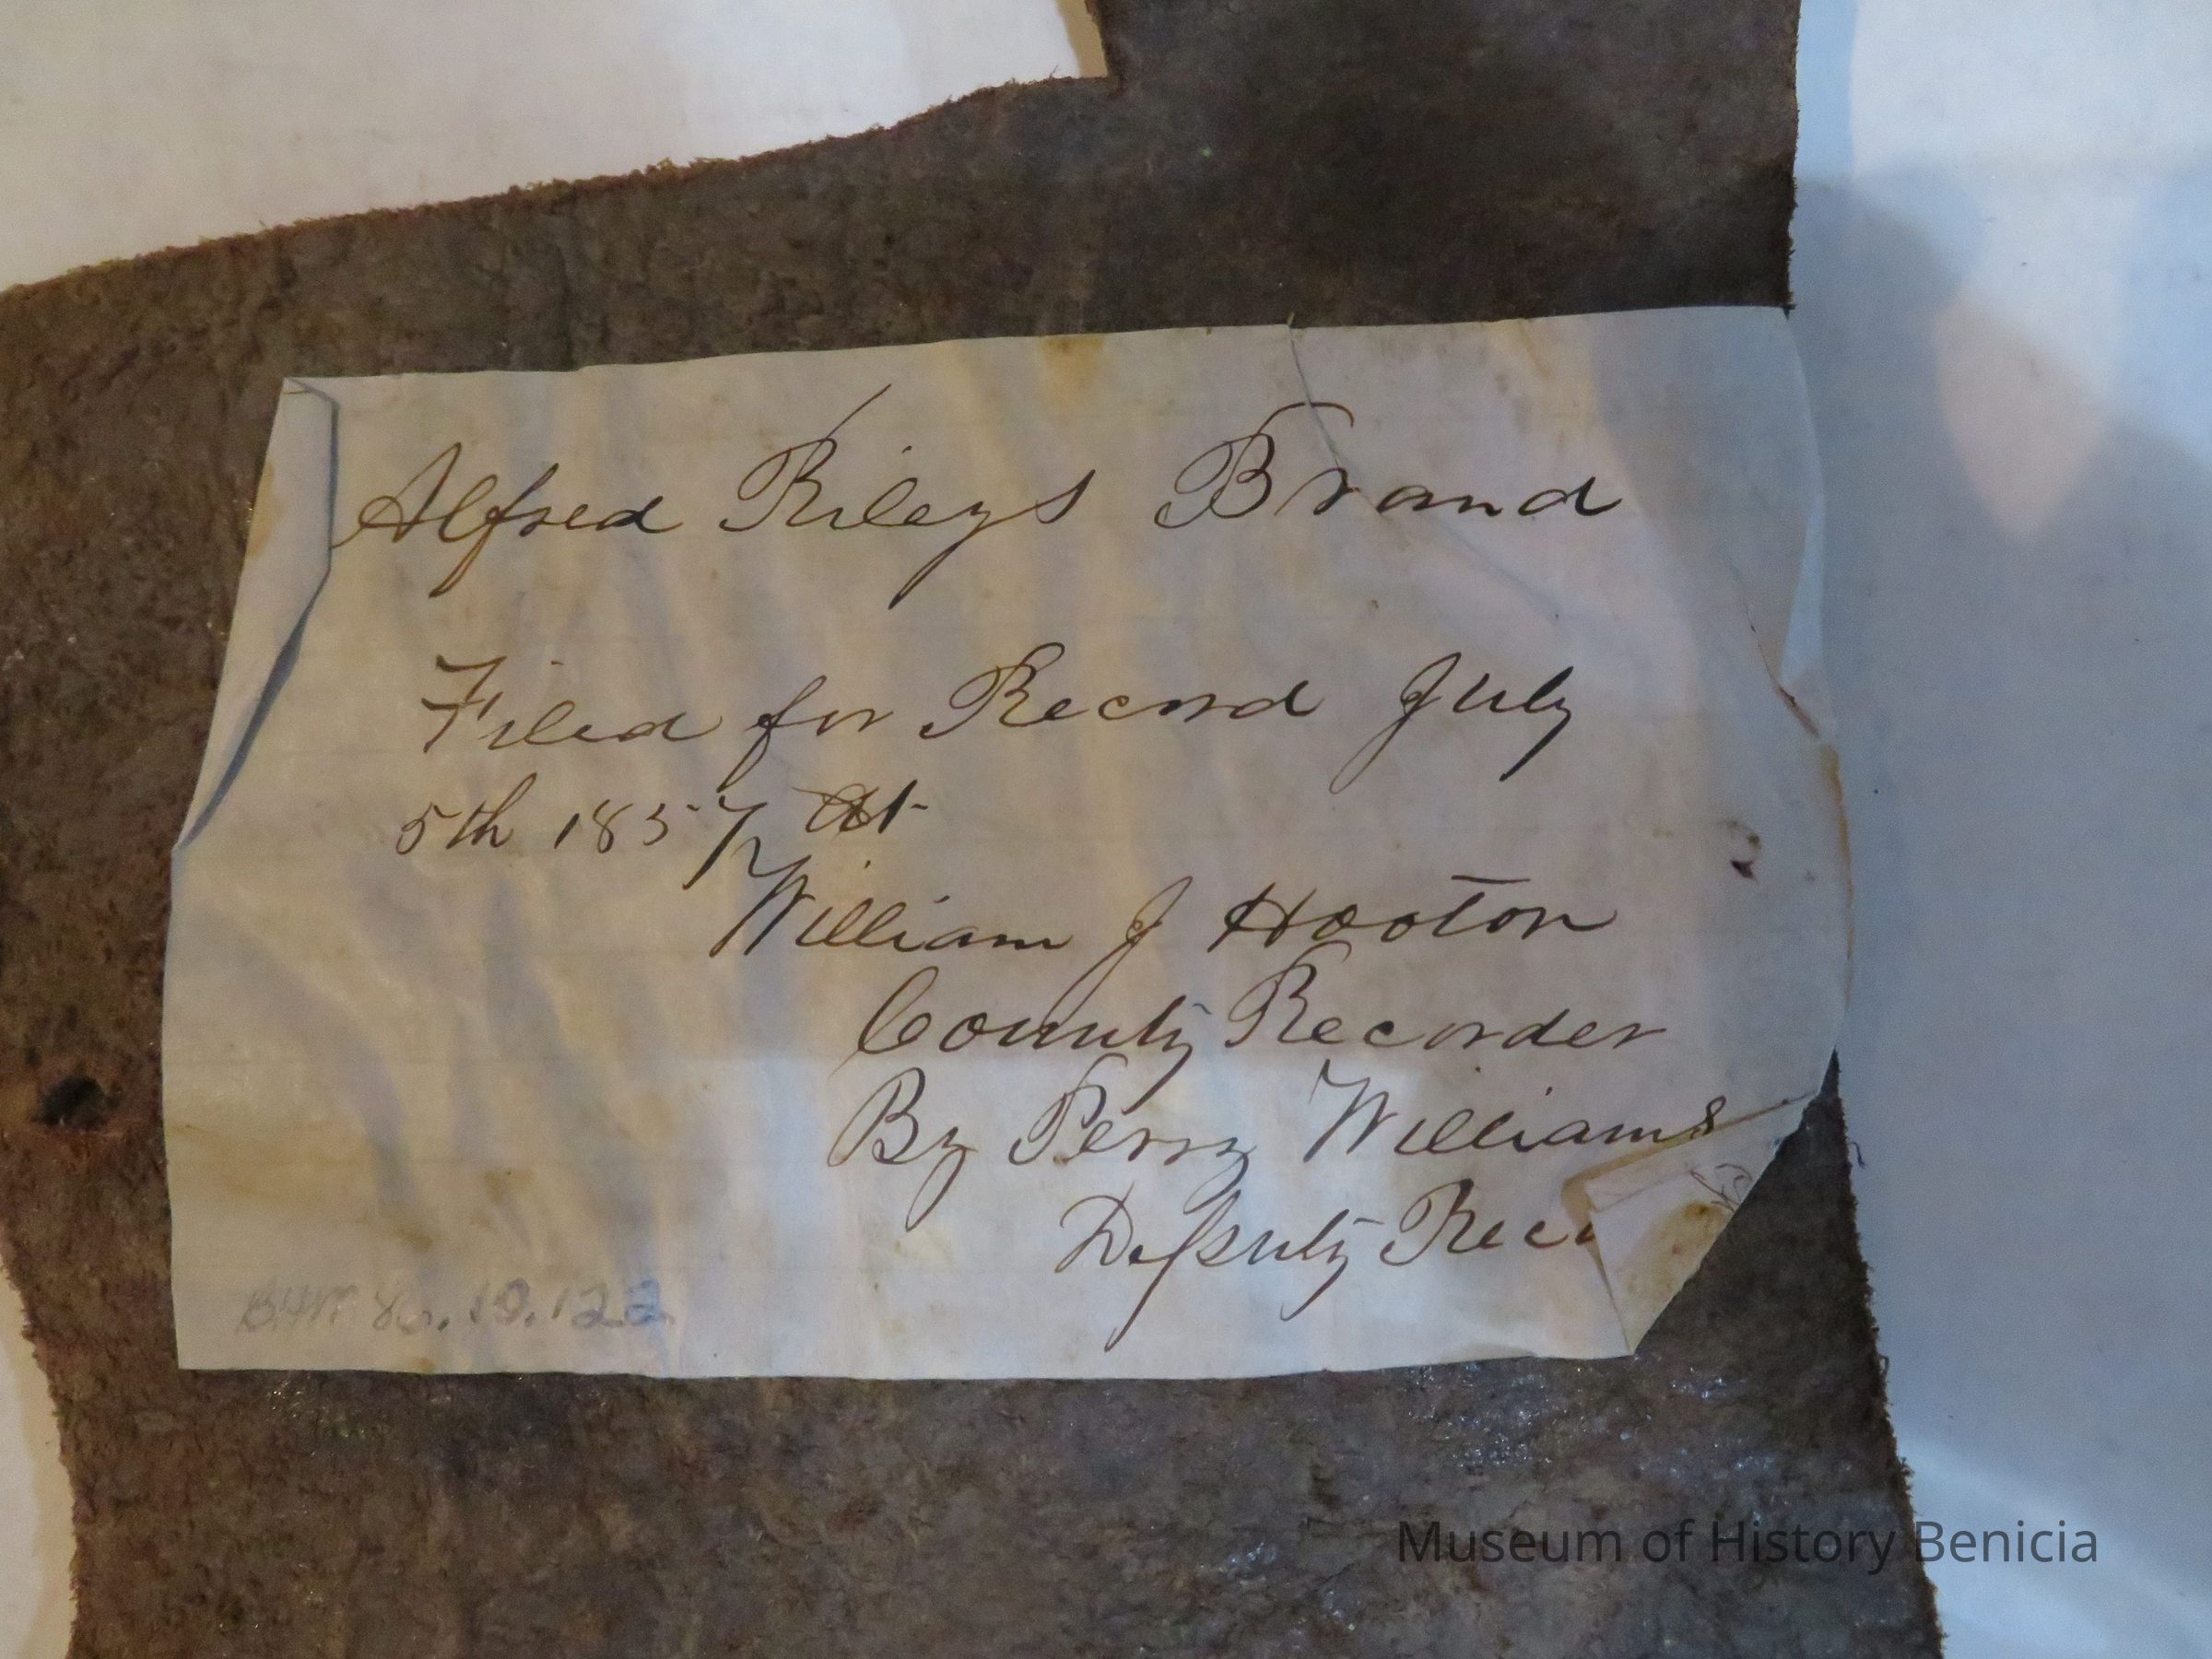 Alfred Rileys Brand
Filed for Record July
5th 1857 At
William J Hooton
County Recorder
By Perry Williams
Deputy Reco
BHM 86.10.122
Museum of History Benicia